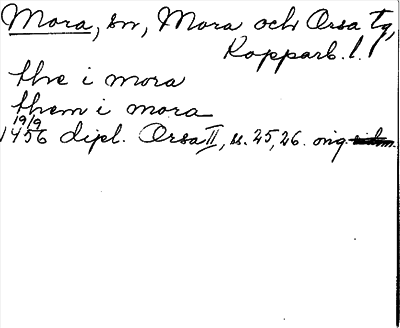 Mora, sn, Mora och Orsa tg,
Kopparb. l.
the i mora
them i mora
19/9
1456 dipl. Orsa II, s. 25, 26. orig.